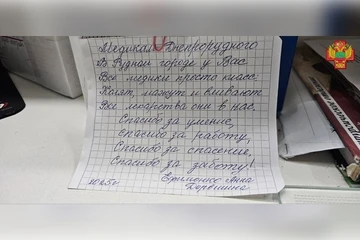 Медикам Днепрорудного
В Рудном городе у Вас
Все медики просто класс.
Колят, мажут и вливают
Все лекарства они в нас.
Спасибо за умение,
Спасибо за работу,
Спасибо за спасение,
Спасибо за заботу!
Ефименко Анна